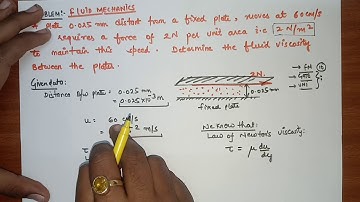 PROBLEM: FLUID MECHANICS
plate 0.025 mm distant from a fixed plate, moves at 60 cm/s
requires a force of 2N per unit area i.e 2 N/m²
to maintain this speed. Determine the fluid viscosity
Between the plates.
2N
0.025 mm
fixed plate
Given data:
Distance b/w plate = 0.025 mm
= 0.025 × 10⁻³ m
u = 60 cm/s
m/s
We know that:
Law of Newton's viscosity:
τ = μ du/dy